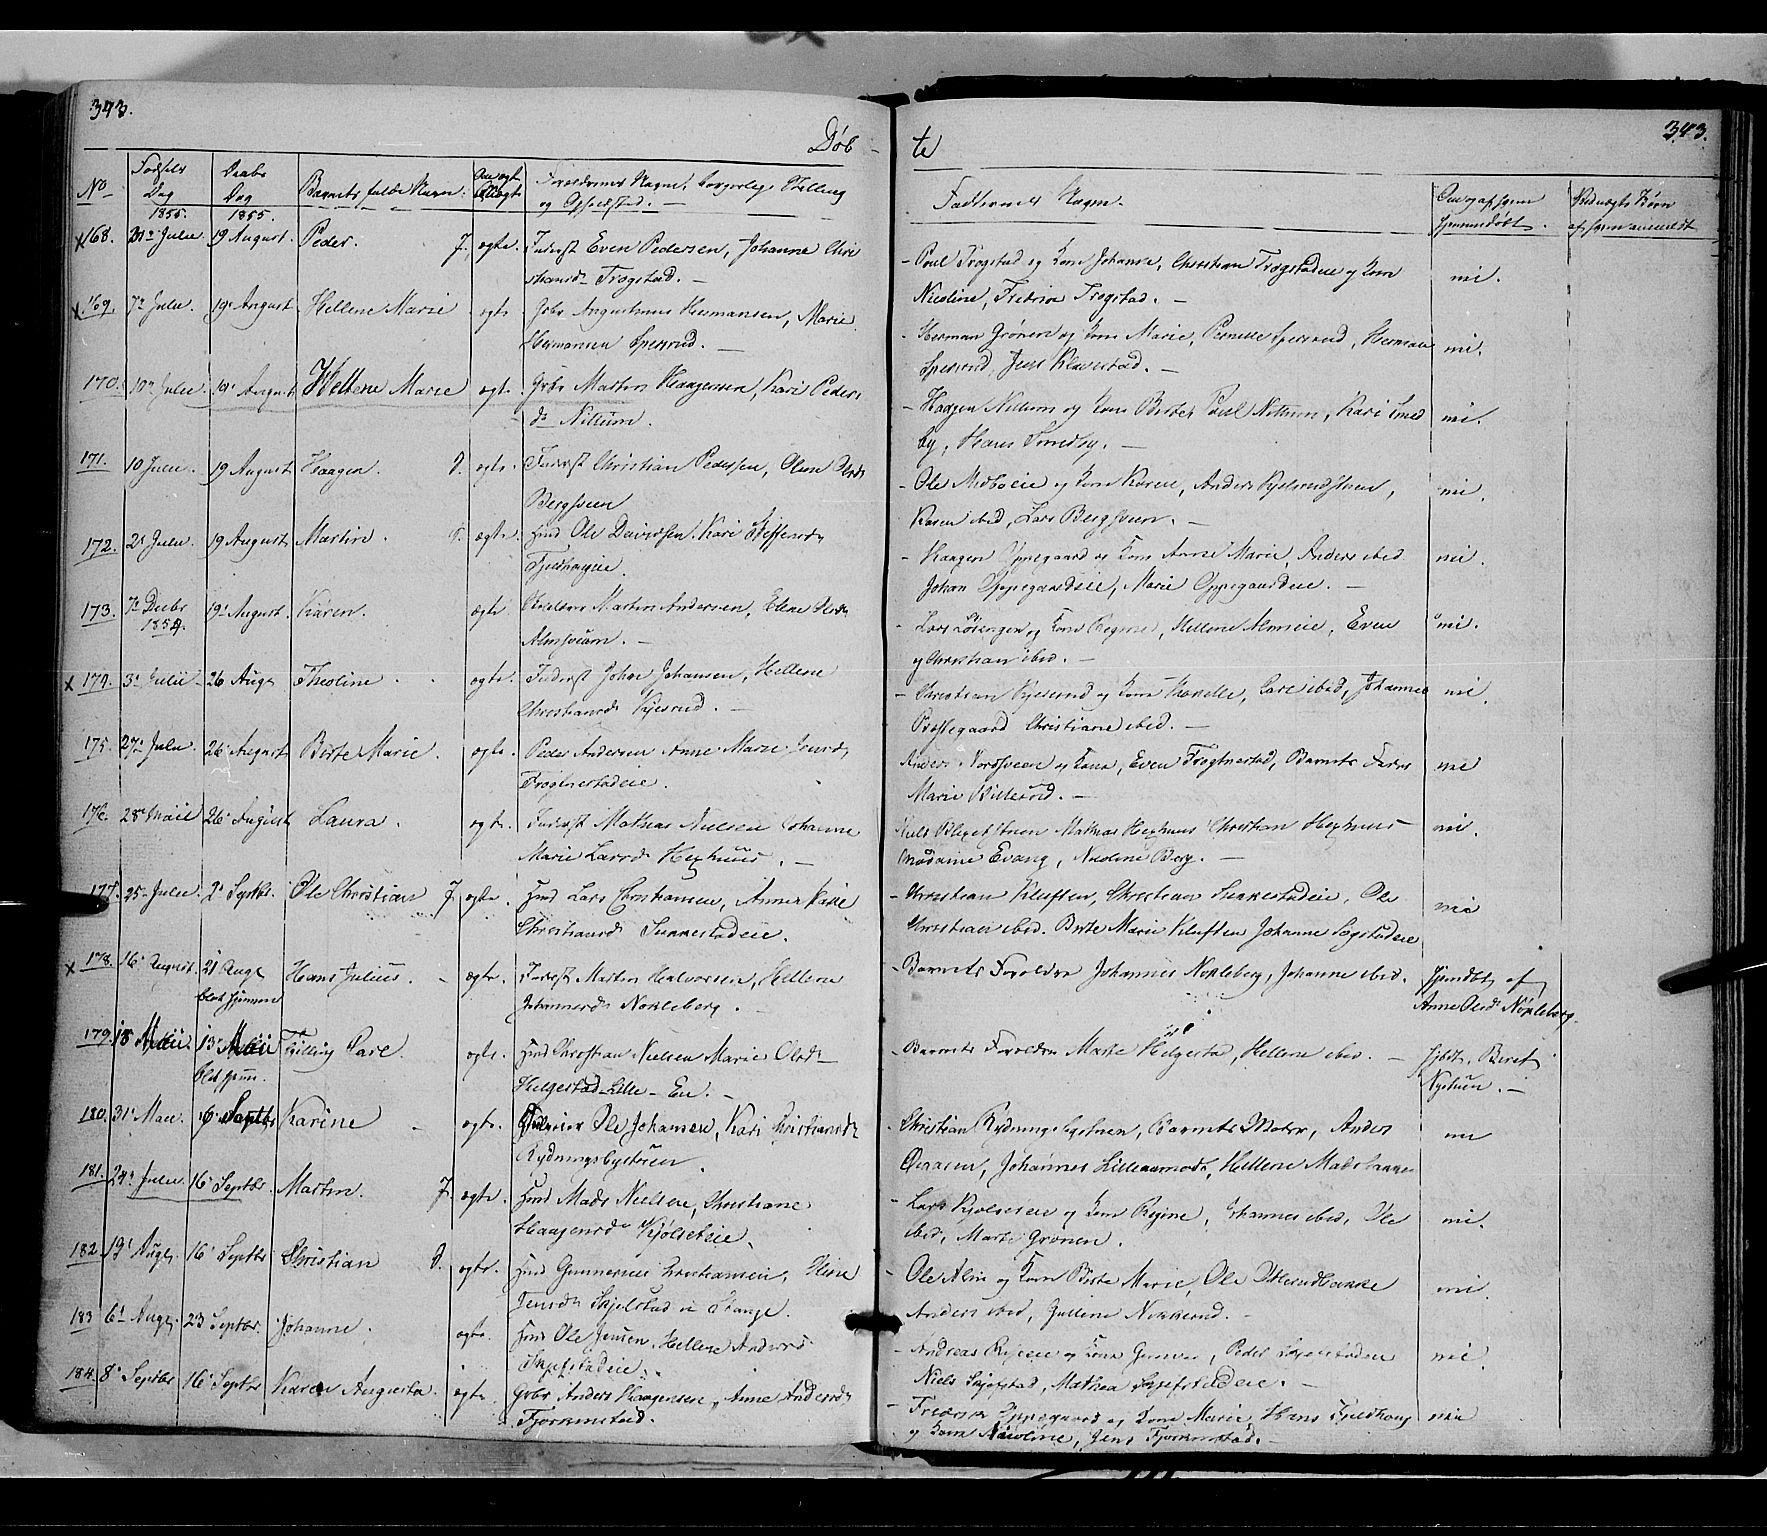 343.
343.
Døb-
te
No
Fødsels
Dag
1855.
Daabs
Dag
1855.
Barnets fulde Navn.
Om ægte
Uægte
Forældrenes Navne, borgerlige Stilling
og Opholdsted.
Faddernes Navne.
Om og af hvem
hjemmedøbt.
af hvem anmeldt
x 168. 31te Julii. 19 August. Peder. J. ægte. Inderst Even Pedersen, Johanne Chri
stiansd. Trogstad. —
- Poul Trogstad og Kone Johanne, Christian Trogstadeie og Kone nei.
Nicoline, Fredrik Trogstad. —
x 169. 7de Julii. 19de August Hellene Marie ægte Gbr Augustinus Hermansen, Marie
Hermansen Spersrud. —
- Herman Grönen og Kone Marie, Pernelle Spersrud, Herman nei.
Spersrud, Jens Klavestad. —
170. 10de Julii 19de August Hellene Marie ægte. Gbr Martin Haagensen, Kari Peders
dr. Nettum.
- Haagen Nettum og Kone Berte, Poul Nettum, Kari Smed nei.
by, Hans Smedby. —
171. 10 Julii. 19 August Haagen. D. ægte. Inderst Christian Pedersen, Oline Olsdr
Bergsveen
- Ole Medboeie og Kone Karen, Anders Kjelsrudstuen, nei.
Karen ibid, Lars Bergsveen. —
172. 2den Julii 19 August Martin. D. ægte. Hmd Ole Davidsen, Kari Steffensdr
Fjeldhageie.
- Haagen Oppegaard og Kone Anne Marie, Anders ibid nei.
Johan Oppegaardeie, Marie Oppegaardeie. —
173. 7de Decbr
1854. 19de August Karen. ægte Martin Andersen, Elene Olsdr
Almsveum. —
- Lars Lösengen og Kone Regine, Hellene Almeie, Even nei.
og Christian ibid. —
x 174. 3die Julii 26 Aug Theoline. ægte. Inderst Johan Johansen, Hellene
Christiansdr Kjelsrud. —
- Christian Kjelsrud og Kone Pernelle, Lars ibid, Johannes nei.
Præstegaard Christiane ibid. —
175. 27de Julii 26 August Berte Marie. ægte. Peder Andersen Anne Marie Jensdr
Trognestadeie.
Anders Nordsveen og Kone, Even Frognestad, Barnets Fader nei
Marie Billerud. —
176. 28de Maii 26de August Laura. ægte. Inderst Mathias Nielsen Johanne
Marie Larsdr Hexhuus. —
Niels Blexetstuen Mathias Hexhuus Christian Hexhuus nei.
Madame Evang, Nicoline Berg. —
177. 25de Julii. 2den Septbr. Ole Christian J. ægte. Hmd Lars Christiansen, Anne Karie
Christiansdr Sukkestadeie.
- Christian Kluften, Christian Sukkestadeie, Ole nei
Christian ibid. Berte Marie Kluften Johanne Sogstadeie
x 178. 16de August. 21 Aug
blot hjemme Hans Julius. ægte. Inderst Martin Halvorsen, Hellene
Johannesdr Nökleberg. —
- Barnets Forældre Johannes Nökleberg, Johanne ibid. Hjemdöbt af
Anne Olsdr Nökleberg.
179. 13 Maii. 13de Maii
blot hjem. Tvilling Care. ægte. Hmd Christian Nielsen Marie Olsdr
Helgestad-Lille-En. —
- Barnets Forældre Marte Helgestad, Hellene ibid. — hjbdt, Berit
Nystuen. —
180. 31te Maii. 16de Septbr Karine ægte. Ole Johansen, Kari Christiansdr
Rydningsbystuen.
- Christian Rydningsbystuen, Barnets Moder, Anders nei
Johannes Lilleaamodt, Hellene
181. 24de Julii 16de Septbr. Martin. J. ægte. Hmd Mads Nielsen, Christiane
Haagensdr Kjölseteie.
- Lars Kjölseteie og Kone Regine, Johannes ibid, Ole nei.
ibid, Marte Grönen.
182. 19de Aug. 16de Septbr Christian D. ægte. Hmd Gunnerius Christiansen, Eline
Jensdr Skjelstad i Stange.
- Ole Alm og Kone Berte Marie, Ole nei.
Anders ibid, Gulline Nokkerud. —
183 6te Aug 23 Septbr. Johanne. ægte. Hmd Ole Jensen, Hellene Andersdr
Skjefstadeie.
- Andreas og Kone Gunnor, Peder Skjefstadeie nei.
Niels Skjefstad, Mathea Skjefstadeie. —
184. 8de Septbr 16de Septbr Karen Augusta. ægte. Gbr Anders Haagensen, Anne Andersdr
Fjorkenstad.
- Fredrik Oppegaard og Kone Marie, Hans Fjeldhaug nei
og Kone Karoline, Jens Fjorkenstad. —